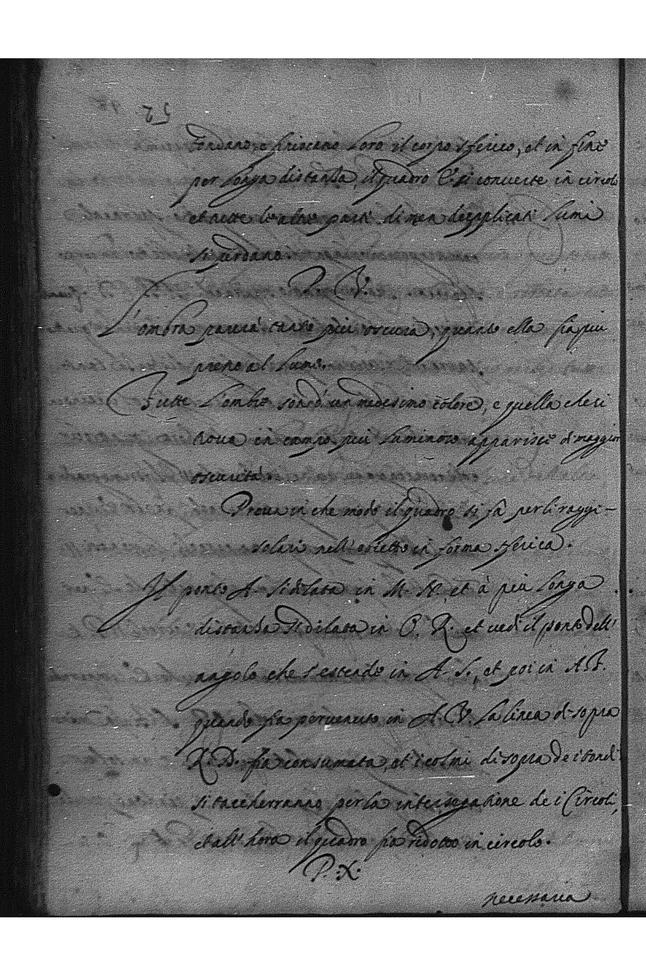 52
tondano, e finiscano loro il corpo sferico, et in fine
per longa distanza, il quadro C. si converte in circolo
et tutte le altre parti di mea deipplicati lumi
si perdano.
P. V.
L'ombra parerà tanto più oscura, quanto ella sia più
preso al lume.
Tutte l'ombre sono d'un medesimo colore, e quella che si
trova in campo più luminoso apparisce di maggior
oscurità.
Prova in che modo il quadro si fà per li raggi
solari nell'obietto in forma sferica.
Il ponto A. si dilata in M. N. et à più longa
distanza si dilata in O. R. et vedi il ponto dell'
angolo che s'estende in A. S., et poi in A. T.
quando sia pervenuto in A. V. La linea di sopra
X. D. fia consumata, et i colmi di sopra de i tondi
si taccherranno per la intersegatione de i Circoli,
et all'hora il quadro fia ridotto in circolo.
P. X.
necessaria